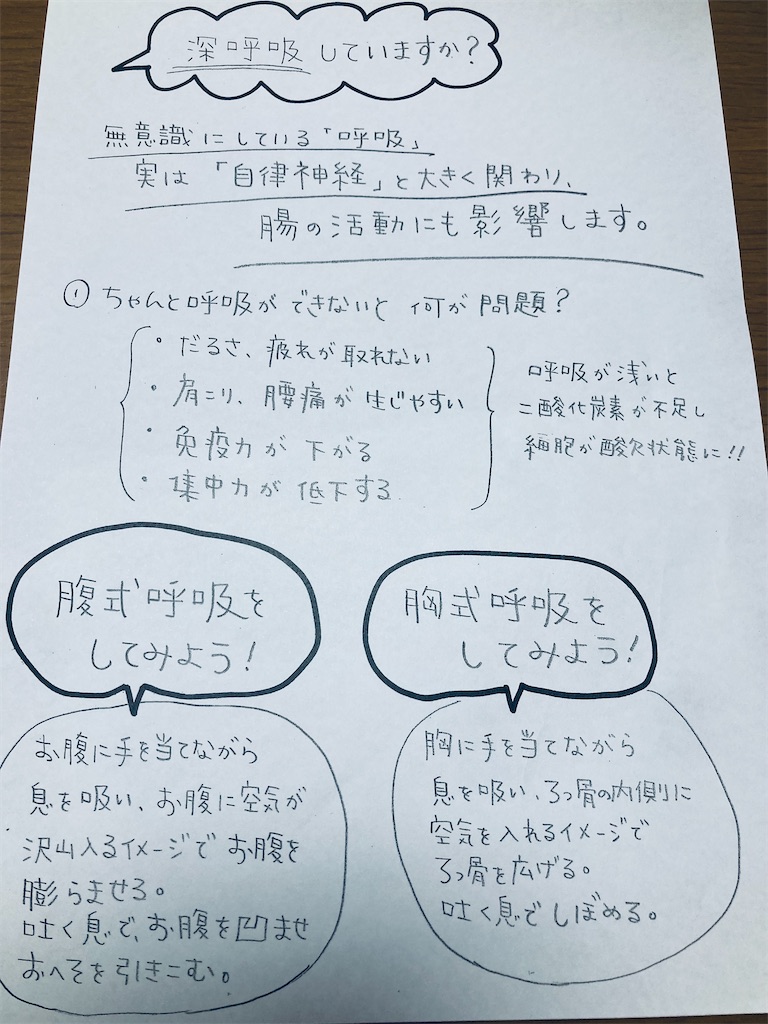 深呼吸していますか?
無意識にしている「呼吸」
実は「自律神経」と大きく関わり、
腸の活動にも影響します。
① ちゃんと呼吸ができないと 何が問題?
・だるさ、疲れが取れない
・肩こり、腰痛が生じやすい
・免疫力が下がる
・集中力が低下する
呼吸が浅いと
二酸化炭素が不足し
細胞が酸欠状態に!!
腹式呼吸を
してみよう!
お腹に手を当てながら
息を吸い、お腹に空気が
沢山入るイメージでお腹を
膨らませる。
吐く息で、お腹を凹ませ
おへそを引きこむ。
胸式呼吸を
してみよう!
胸に手を当てながら
息を吸い、ろっ骨の内側に
空気を入れるイメージで
ろっ骨を広げる。
吐く息でしぼめる。